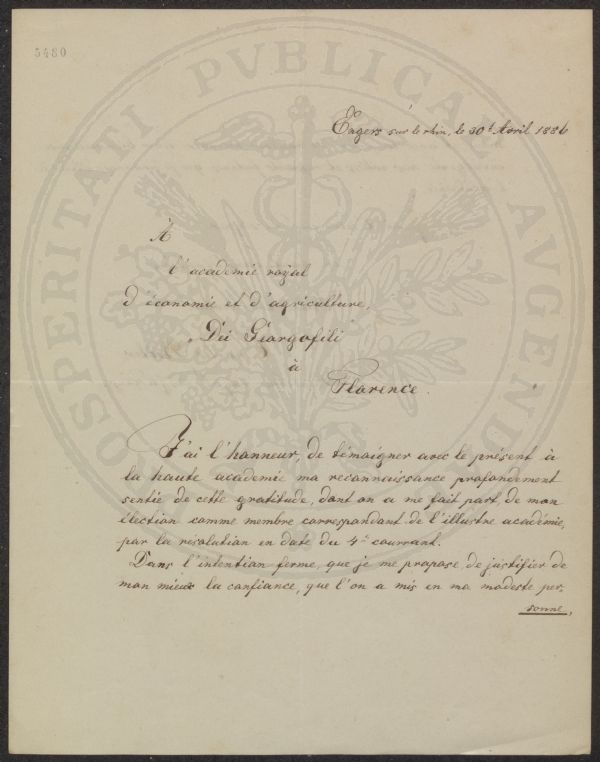 5480
PROSPERITATI PVBLICAE AVGENDAE
Engers sur le rhin, le 30t Avril 1886
A
l'academie royal
d'économie et d'agriculture,
"Dei Géorgofili"
à
Florence.
J'ai l'honneur, de témoigner avec le présent à
la haute academie ma reconnaissance profondement
sentie de cette gratitude, dont on a me fait part, de mon
élection comme membre correspondant de l'illustre académie,
par la resolution en date du 4t courrant.
Dans l'intention ferme, que je me propose, de justifier de
mon mieux la confiance, que l'on a mis en ma modeste per-
sonne,